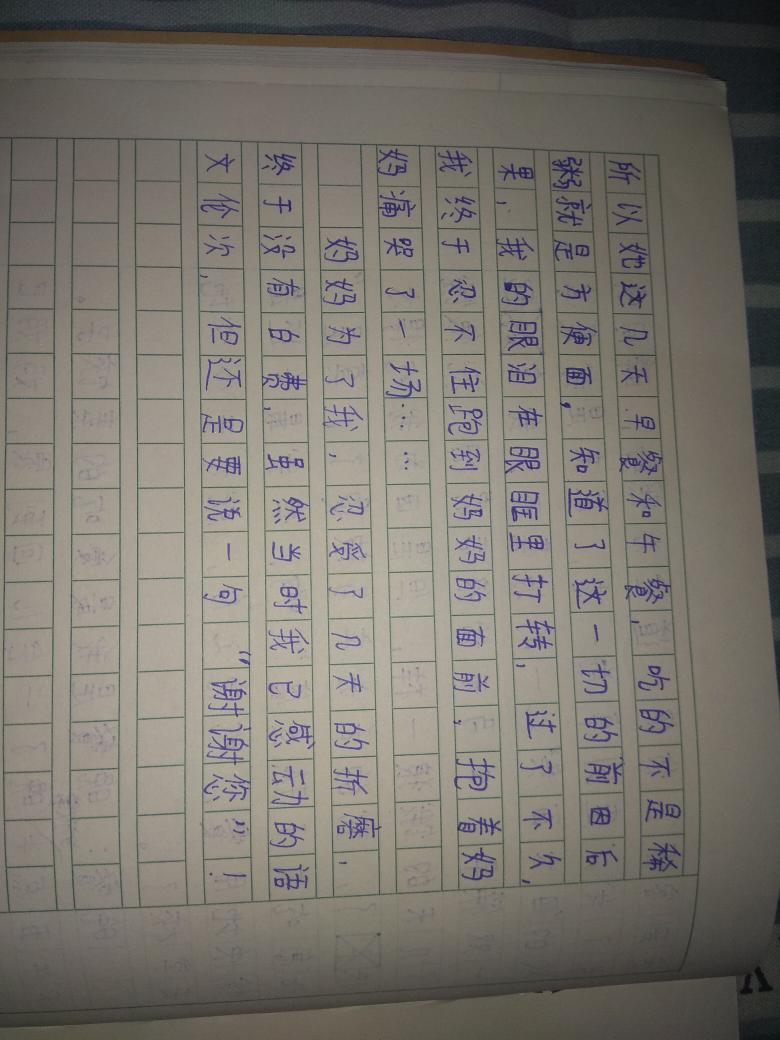 所以她这几天早餐和午餐，吃的不是稀
粥就是方便面，知道了这一切的前因后
果，我的眼泪在眼眶里打转，过了不久，
我终于忍不住跑到妈妈的面前，抱着妈
妈痛哭了一场……
妈妈为了我，忍受了几天的折磨，
终于没有白费，虽然当时我已感动的语
文伦次，但还是要说一句“谢谢您”！